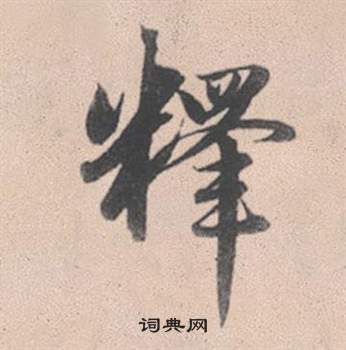 釋
词典网